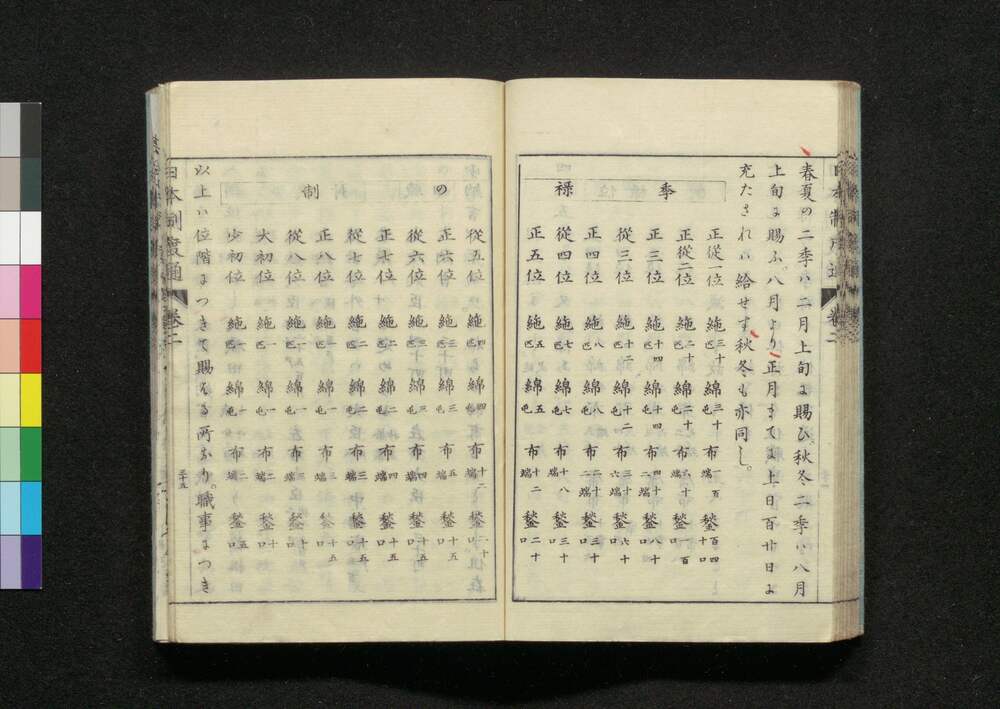 春夏の二季ハ二月上旬に賜ひ、秋冬二季ハ八月
上旬に賜ふ。八月より正月までに上日百廿日に
充たされハ給せず、秋冬も亦同し。
季祿
正從一位 絁三十匹 綿三十屯 布一百端 鍫百四十口
正從二位 絁二十匹 綿二十屯 布六十端 鍫一百口
正三位 絁十四匹 綿十四屯 布四十二端 鍫八十口
從三位 絁十二匹 綿十二屯 布三十六端 鍫六十口
正四位 絁八匹 綿八屯 布二十二端 鍫三十口
從四位 絁七匹 綿七屯 布十八端 鍫三十口
正五位 絁五匹 綿五屯 布十二端 鍫二十口
の制
從五位 絁四匹 綿四屯 布十二端 鍫二十口
正六位 絁三匹 綿三屯 布五端 鍫十五口
從六位 絁三匹 綿三屯 布四端 鍫十五口
正七位 絁二匹 綿二屯 布四端 鍫十五口
從七位 絁二匹 綿二屯 布三端 鍫十五口
正八位 絁一匹 綿一屯 布三端 鍫十五口
從八位 絁一匹 綿一屯 布三端 鍫十口
大初位 絁一匹 綿一屯 布二端 鍫十口
少初位 絁一匹 綿一屯 布二端 鍫五口
以上ハ位階につきて賜はる所なり。職事につき
日本制度通 卷二 三十五